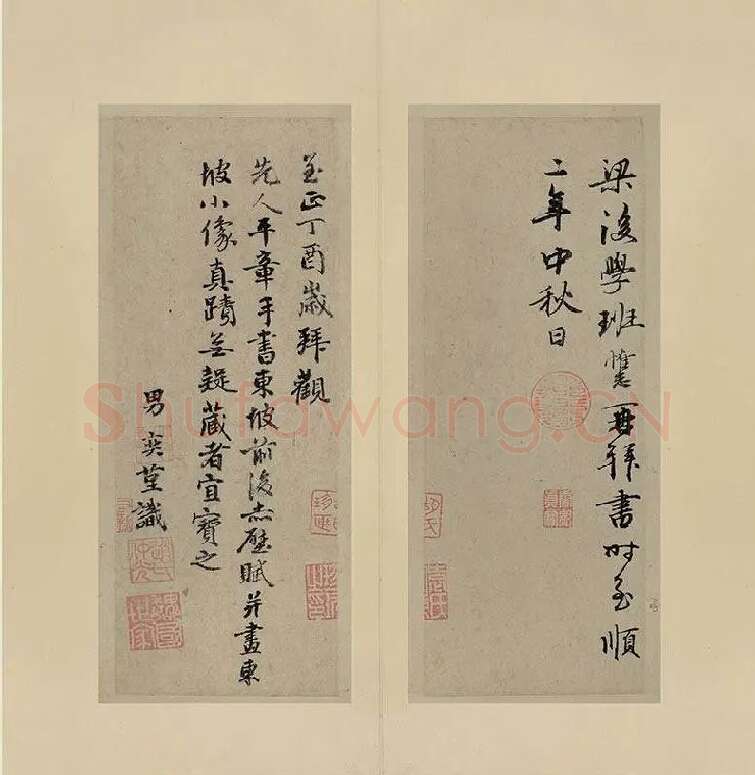 梁後學班惟志再拜書時至順
二年中秋日
至正丁酉歲拜觀
先人平章手書東坡前後赤壁賦并畫東
坡小像真蹟無疑藏者宜寶之
男奕謹識
Shufawang.CN